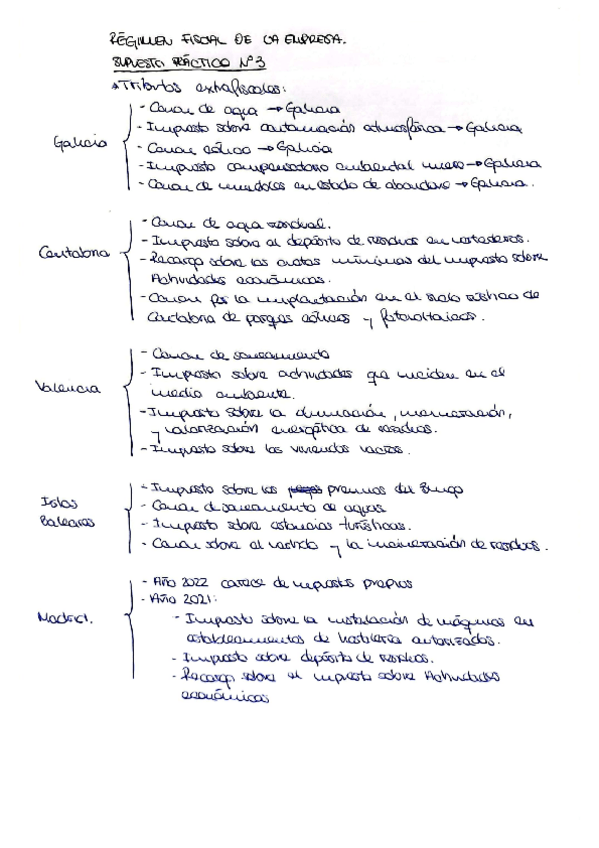 RÉGIMEN FISCAL DE LA EMPRESA.
SUPUESTO PRÁCTICO Nº3
*Tributos extrafiscales:
Galicia
- Canon de agua → Galicia
- Impuesto sobre contaminación atmosférica → Galicia
- Canon eólico → Galicia
- Impuesto compensatorio ambiental minero → Galicia
- Canon de inmuebles en estado de abandono → Galicia.
Cantabria
- Canon de agua residual.
- Impuesto sobre el depósito de residuos en vertederos.
- Recargo sobre las cuotas mínimas del impuesto sobre
Actividades económicas.
- Canon por la implantación en el suelo rústico de
Cantabria de parques eólicos y fotovoltaicos.
Valencia
- Canon de saneamiento
- Impuesto sobre actividades que inciden en el
medio ambiente.
- Impuesto sobre la eliminación, incineración,
y valorización energética de residuos.
- Impuesto sobre las viviendas vacías.
Islas
Baleares
- Impuesto sobre los premios del Bingo
- Canon de saneamiento de aguas.
- Impuesto sobre estancias turísticas.
- Canon sobre el vertido y la incineración de residuos.
Madrid.
- Año 2022 carece de impuestos propios
- Año 2021:
- Impuesto sobre la instalación de máquinas en
establecimientos de hostelería autorizados.
- Impuesto sobre depósito de residuos.
- Recargo sobre el impuesto sobre Actividades
económicas